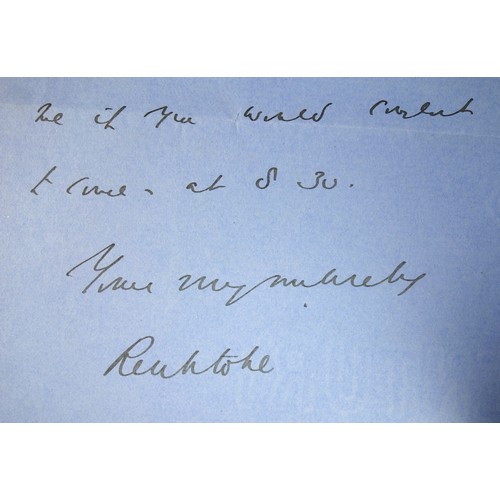 me if you would consent
to come - at 8 30.
Yours very sincerely